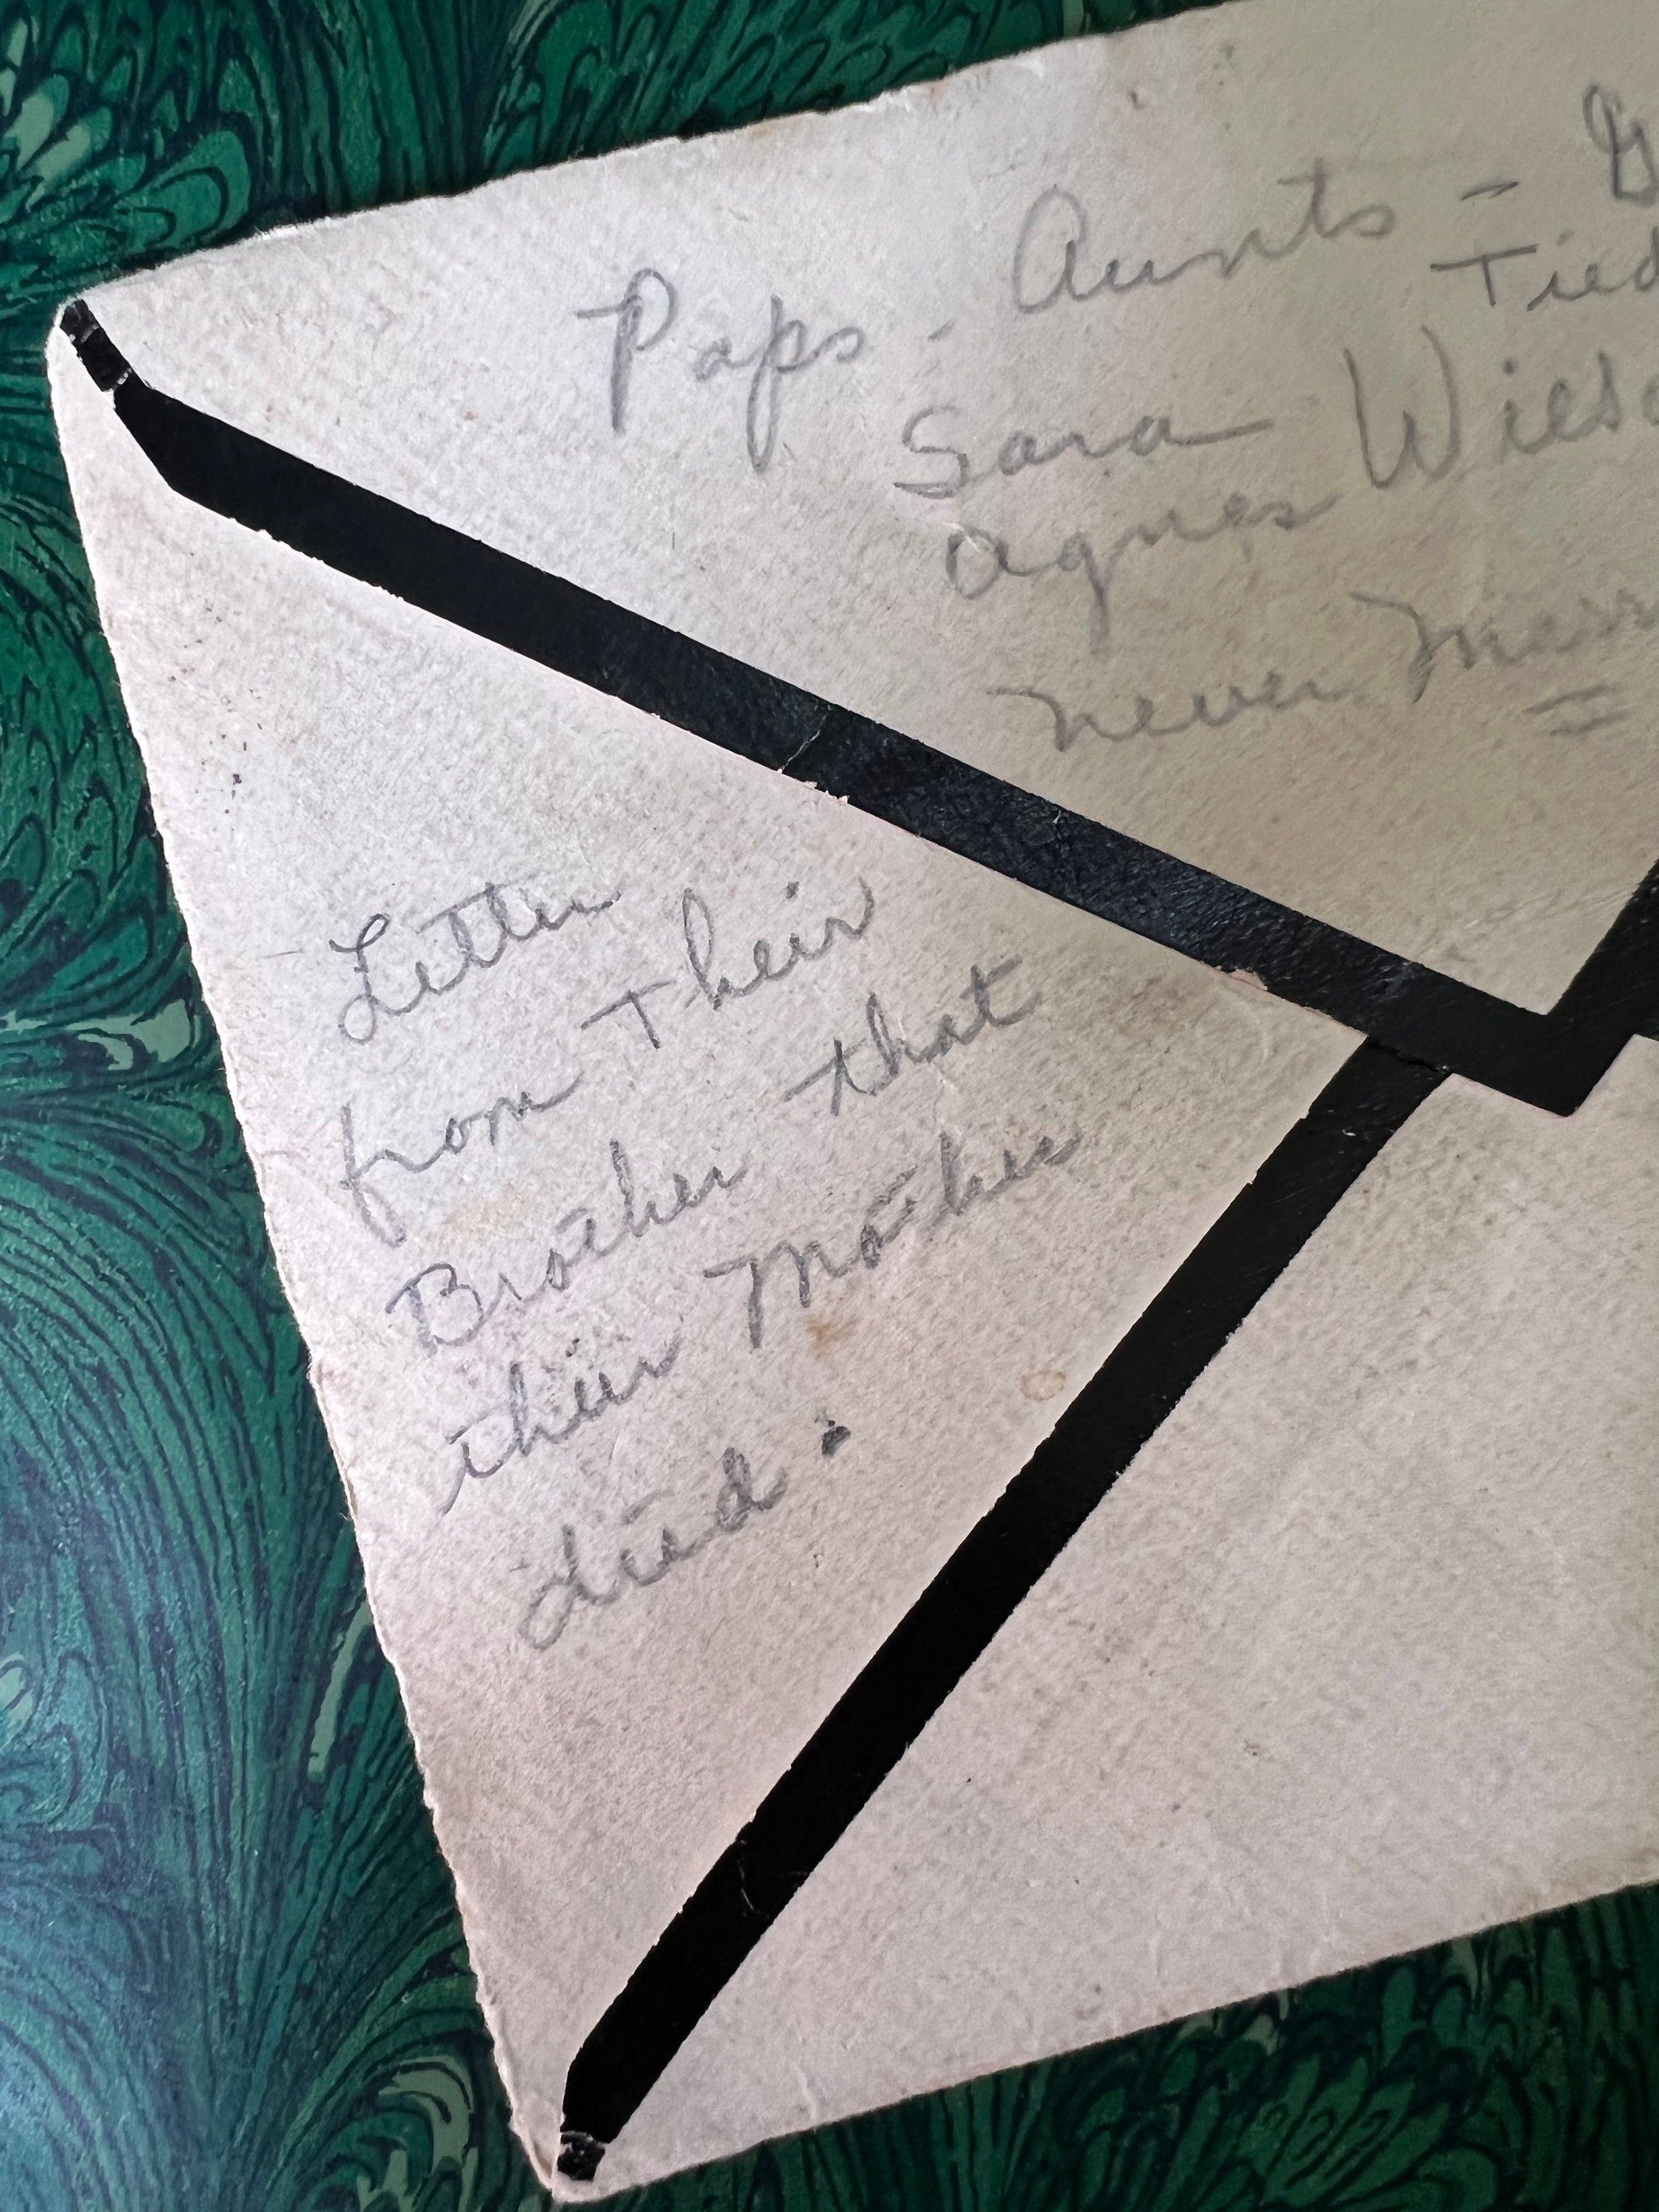 Paps - Aunts - G
Tied
Sara
Agnes Wilso
never Marr
Letter
from Their
Brother that
their Mother
died.